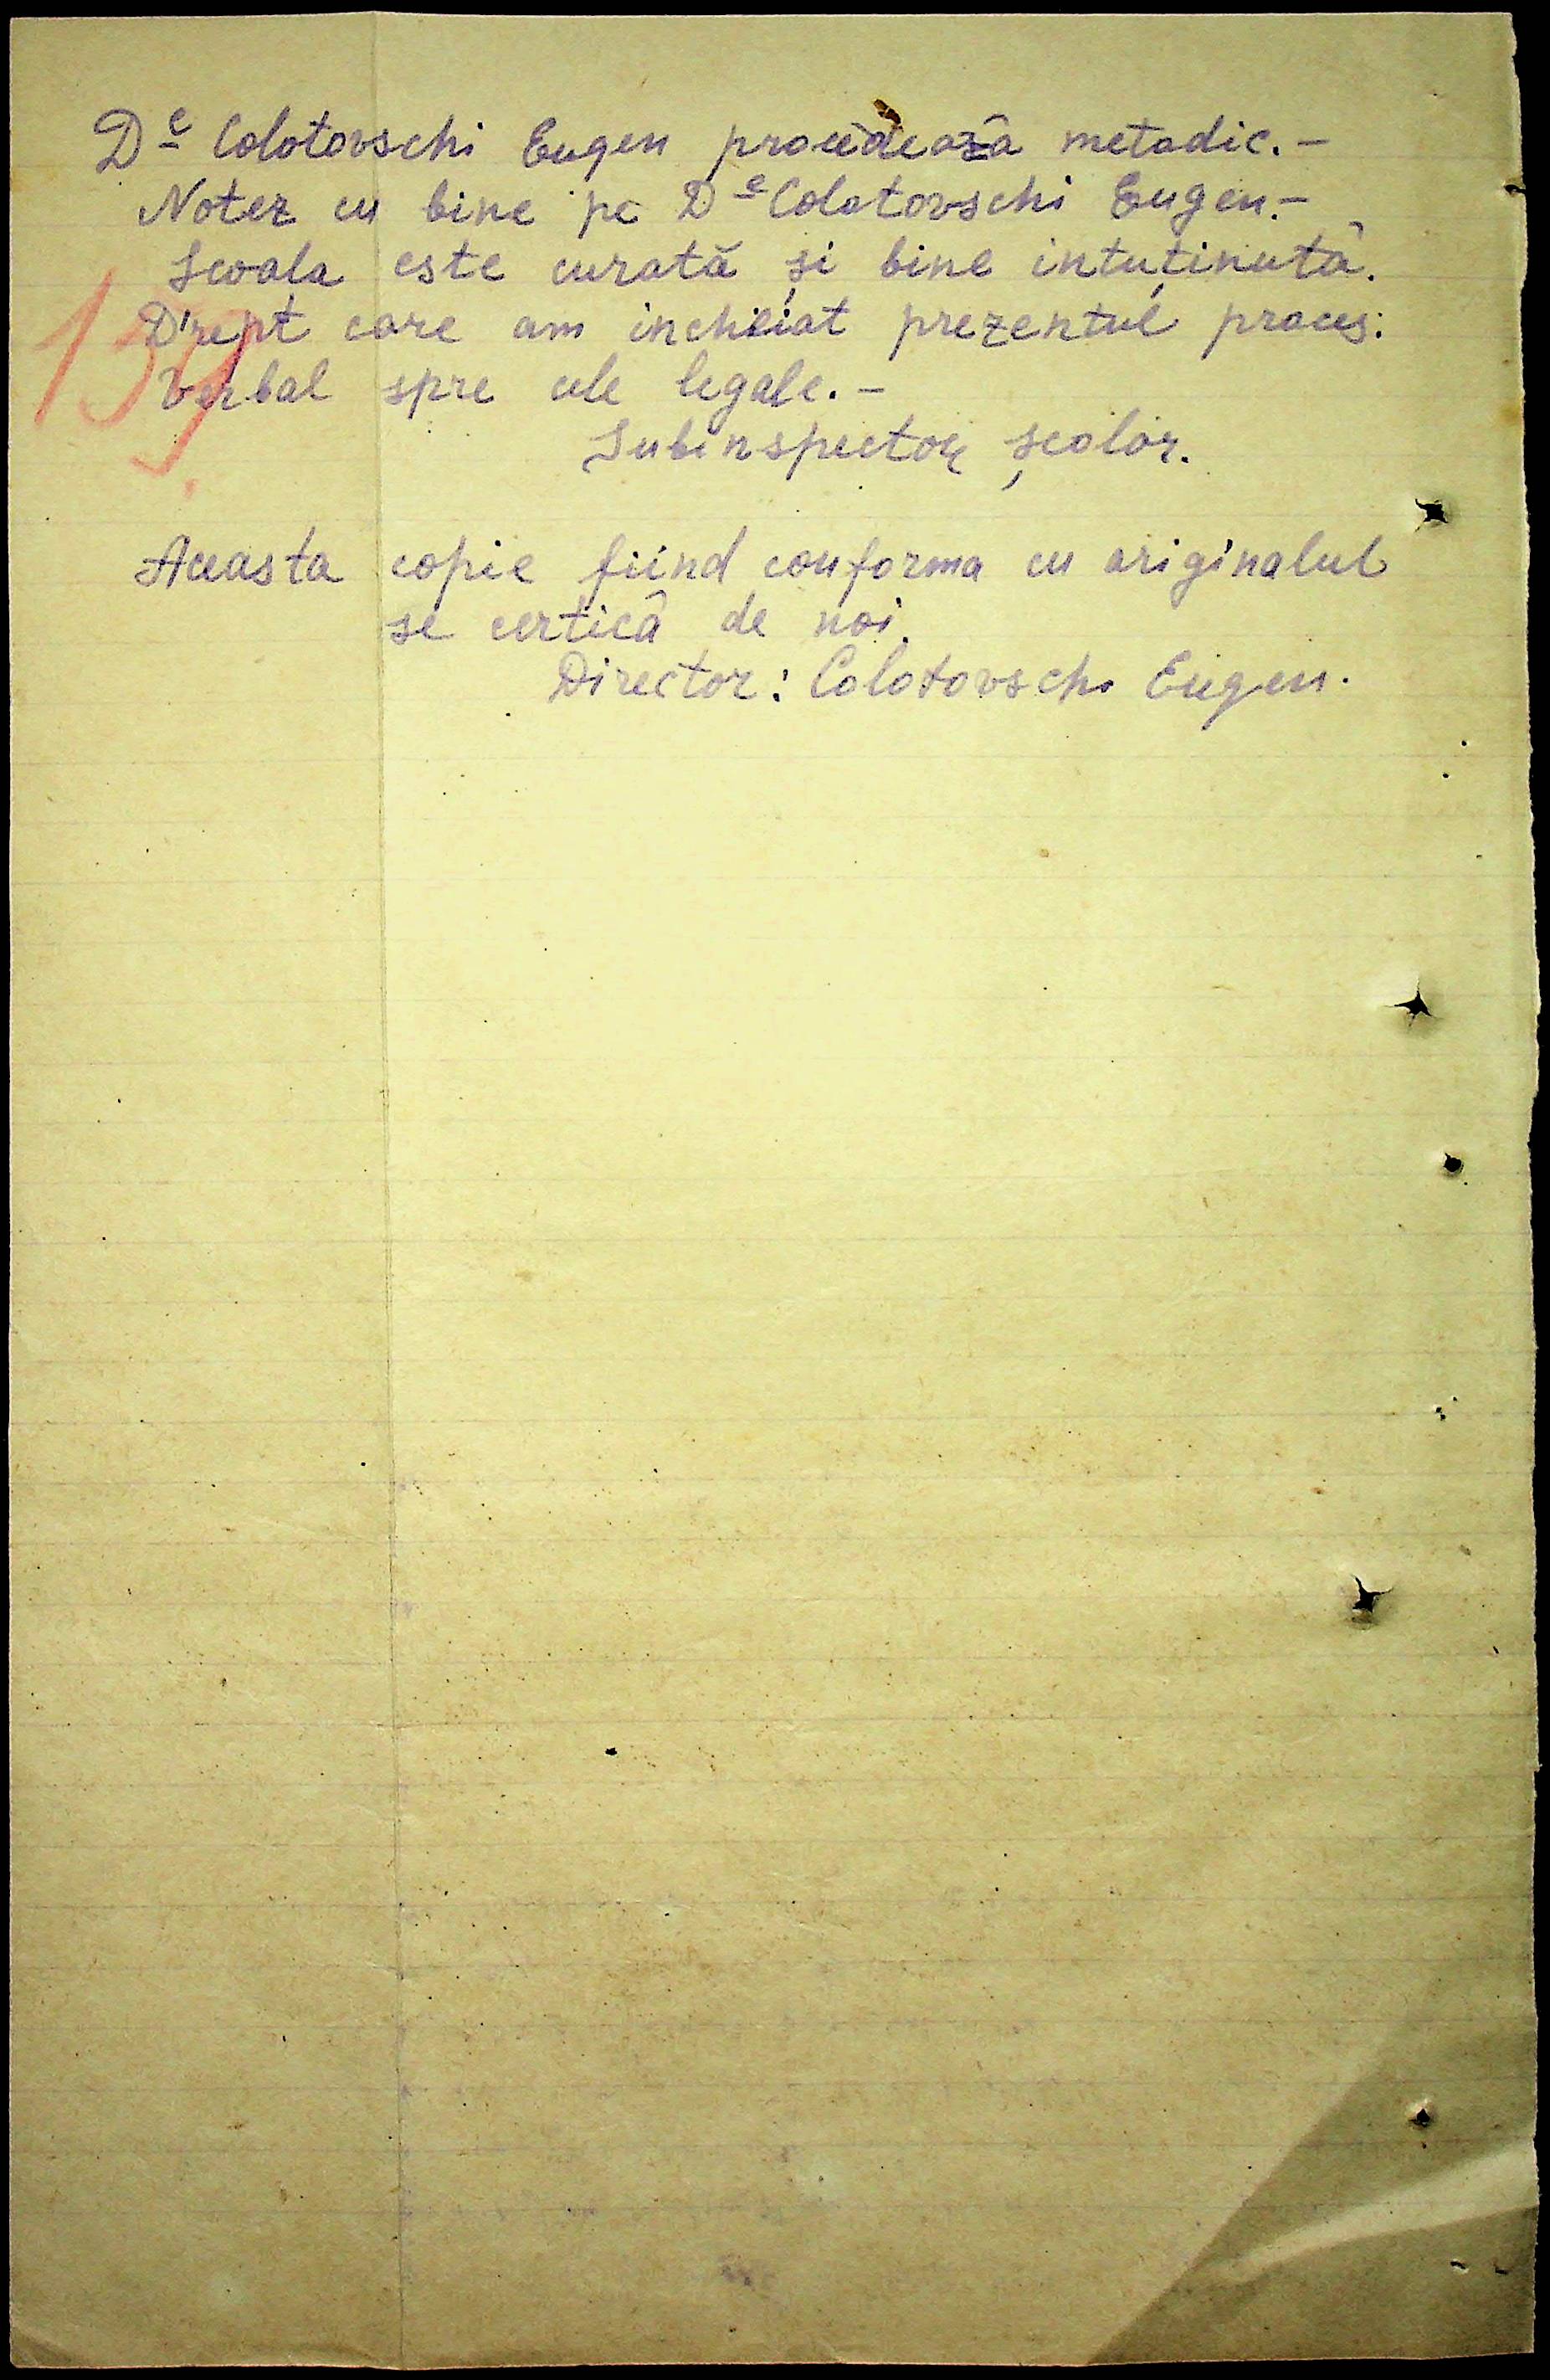 De Colotovschi Eugen procedează metodic.-
Notez cu bine pe De Colotovschi Eugen.-
Scoala este curată și bine intuținută.
159
Drept care am incheiat prezentul proces:
verbal spre cele legale.-
Subinspector școlar.
Aceasta copie fiind conforma cu originalul
se certică de noi.
Director: Colotovschi Eugen.